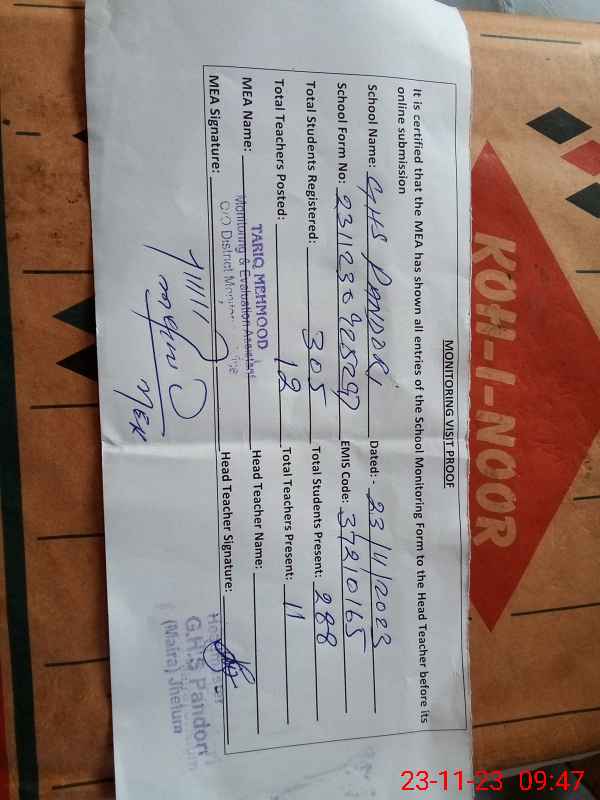 MONITORING VISIT PROOF
It is certified that the MEA has shown all entries of the School Monitoring Form to the Head Teacher before its
online submission
School Name: GHS PANDORI Dated: - 23/11/2023
School Form No: EMIS Code: 37210165
Total Students Registered: 305 Total Students Present: 288
Total Teachers Posted: 12 Total Teachers Present: 11
MEA Name: Head Teacher Name:
TARIQ MEHMOOD
Monitoring & Evaluation Assistant
C/O District
MEA Signature: Head Teacher Signature:
MEA
G.H.S Pandori
(Maira) Jhelum
KOH-I-NOOR
23-11-23 09:47